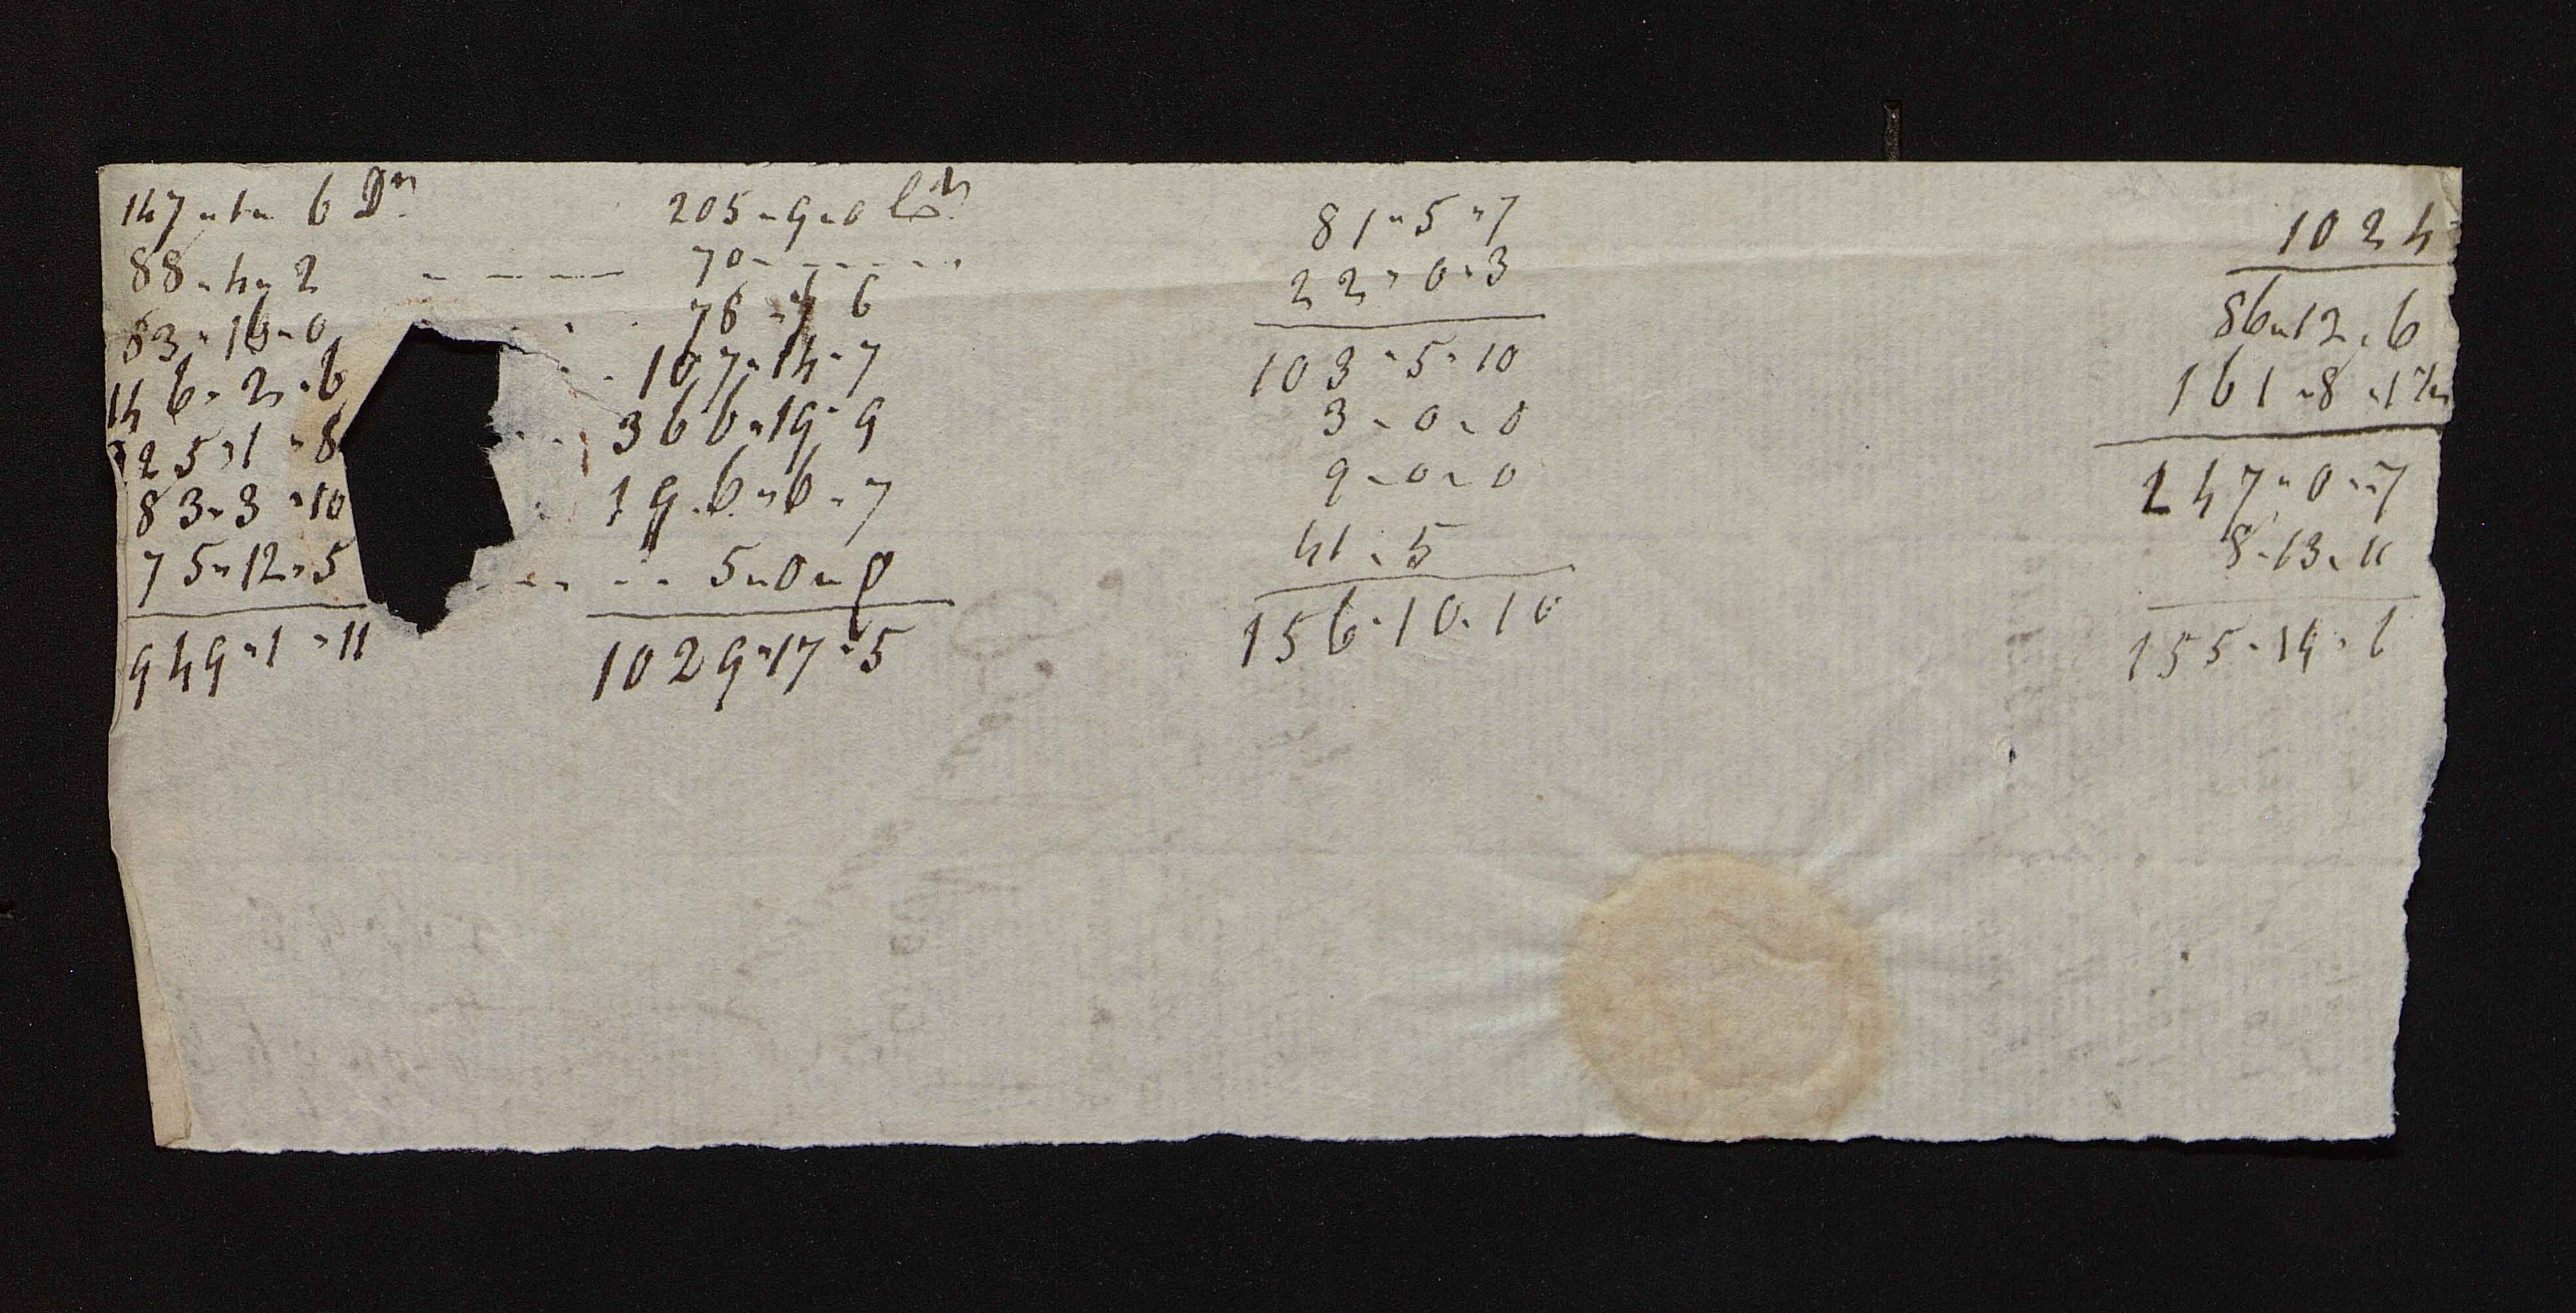 147 " 1 " 6 Dr
88 " 4 " 2
83 " 16 " 0
146 " 2 " 6
325 " 1 " 8
83 " 3 " 10
75 " 12 " 5
949 " 1 " 11
205 " 9 " 0
70 - - - - -
78 " 7 6
107 " 14 " 7
366 " 19 " 9
196 " 6 " 7
5 " 0 " 0
1029 " 17 " 5
81 " 5 " 7
22 " 0 " 3
103 " 5 " 10
3 " 0 " 0
9 " 0 " 0
41 " 5
156 " 10 " 10
1024
86 " 12 " 6
161 " 8 " 1
247 " 0 " 7
8 " 13 " 11
155 " 14 " 6